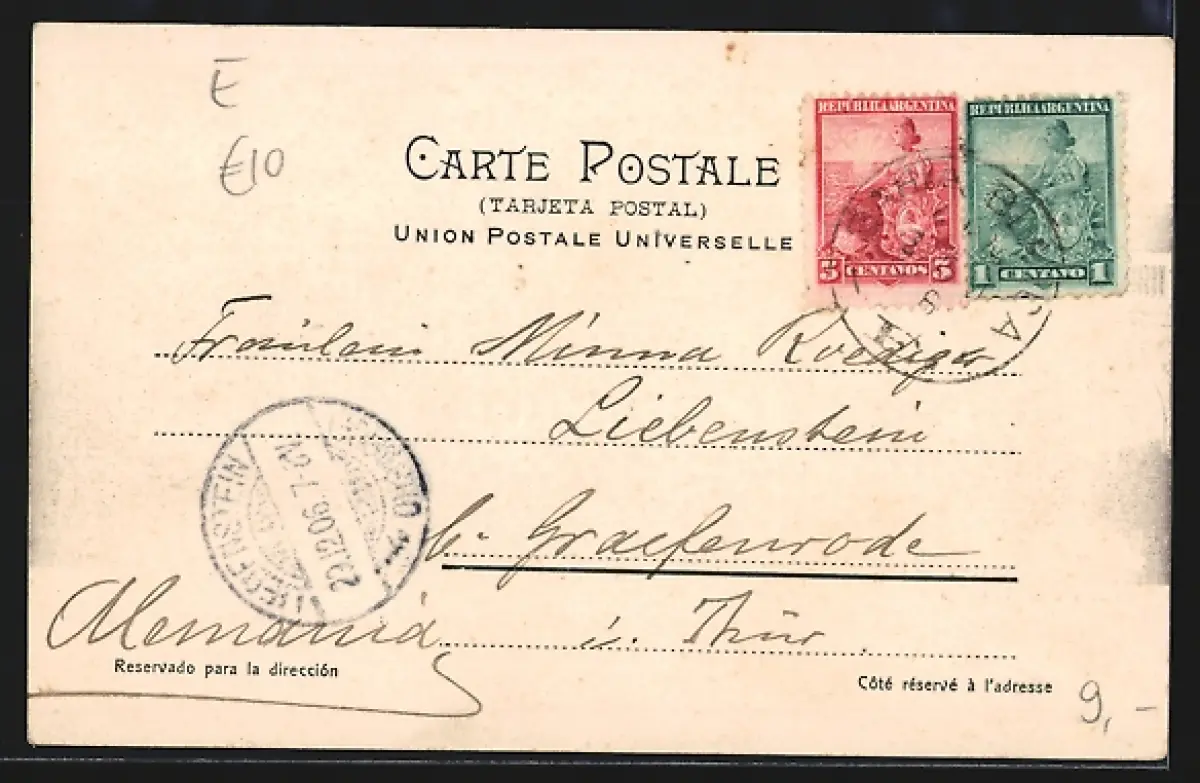 E
€10
CARTE POSTALE
(TARJETA POSTAL)
UNION POSTALE UNIVERSELLE
REPUBLICA ARGENTINA
5 CENTAVOS 5
REPUBLICA ARGENTINA
1 CENTAVO 1
BAHIA BLANCA
Fräulein Minna Roediger
Liebenstein
LIEBENSTEIN
29.12.06. 7-
b. Graefenrode
Alemania i. Thür.
Reservado para la dirección
Côté réservé à l'adresse
9,-